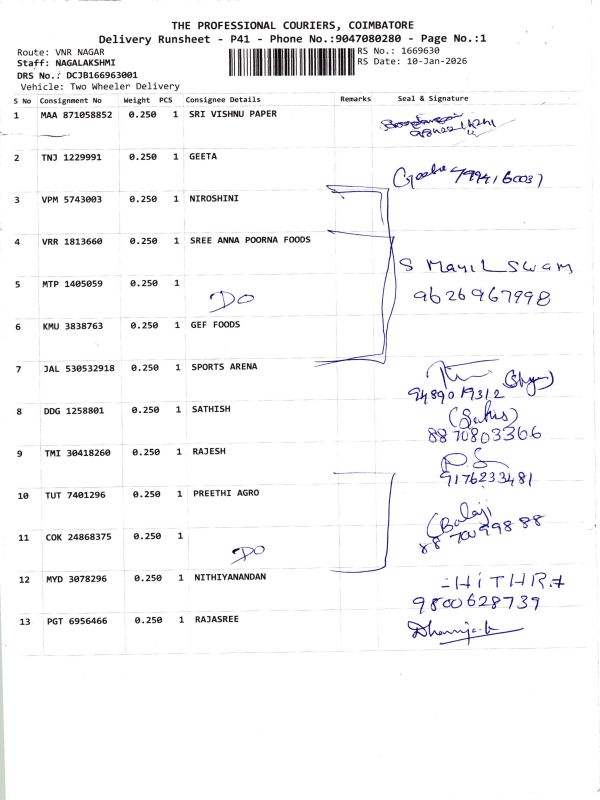 THE PROFESSIONAL COURIERS, COIMBATORE
Delivery Runsheet - P41 - Phone No.:9047080280 - Page No.:1
Route: VNR NAGAR
RS No.: 1669630
Staff: NAGALAKSHMI
RS Date: 10-Jan-2026
DRS No.: DCJB166963001
Vehicle: Two Wheeler Delivery
S No Consignment No Weight PCS Consignee Details Remarks Seal & Signature
1 MAA 871058852 0.250 1 SRI VISHNU PAPER
2 TNJ 1229991 0.250 1 GEETA Geetha
3 VPM 5743003 0.250 1 NIROSHINI
4 VRR 1813660 0.250 1 SREE ANNA POORNA FOODS
S MAYILSWAM
5 MTP 1405059 0.250 1 DO 9626967998
6 KMU 3838763 0.250 1 GEF FOODS
7 JAL 530532918 0.250 1 SPORTS ARENA
9489019312
8 DDG 1258801 0.250 1 SATHISH
8870803366
9 TMI 30418260 0.250 1 RAJESH
9176233481
10 TUT 7401296 0.250 1 PREETHI AGRO
(Balaji
11 COK 24868375 0.250 1 DO 88 70099888
12 MYD 3078296 0.250 1 NITHIYANANDAN HITHRA
9800628739
13 PGT 6956466 0.250 1 RAJASREE